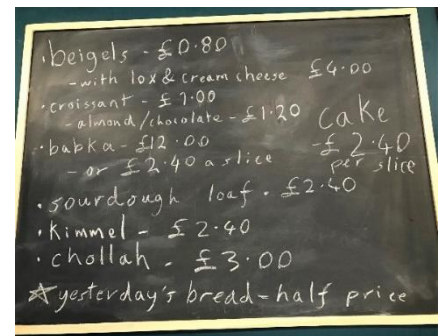 · beigels - £0·80
- with lox & cream cheese £4·00
· croissant - £1·00
- almond/chocolate - £1·20
· babka - £12·00
- or £2·40 a slice
cake
- £2·40
per slice
· sourdough loaf · £2·40
· Kimmel - £2·40
· chollah - £3·00
☆ yesterday's bread = half price